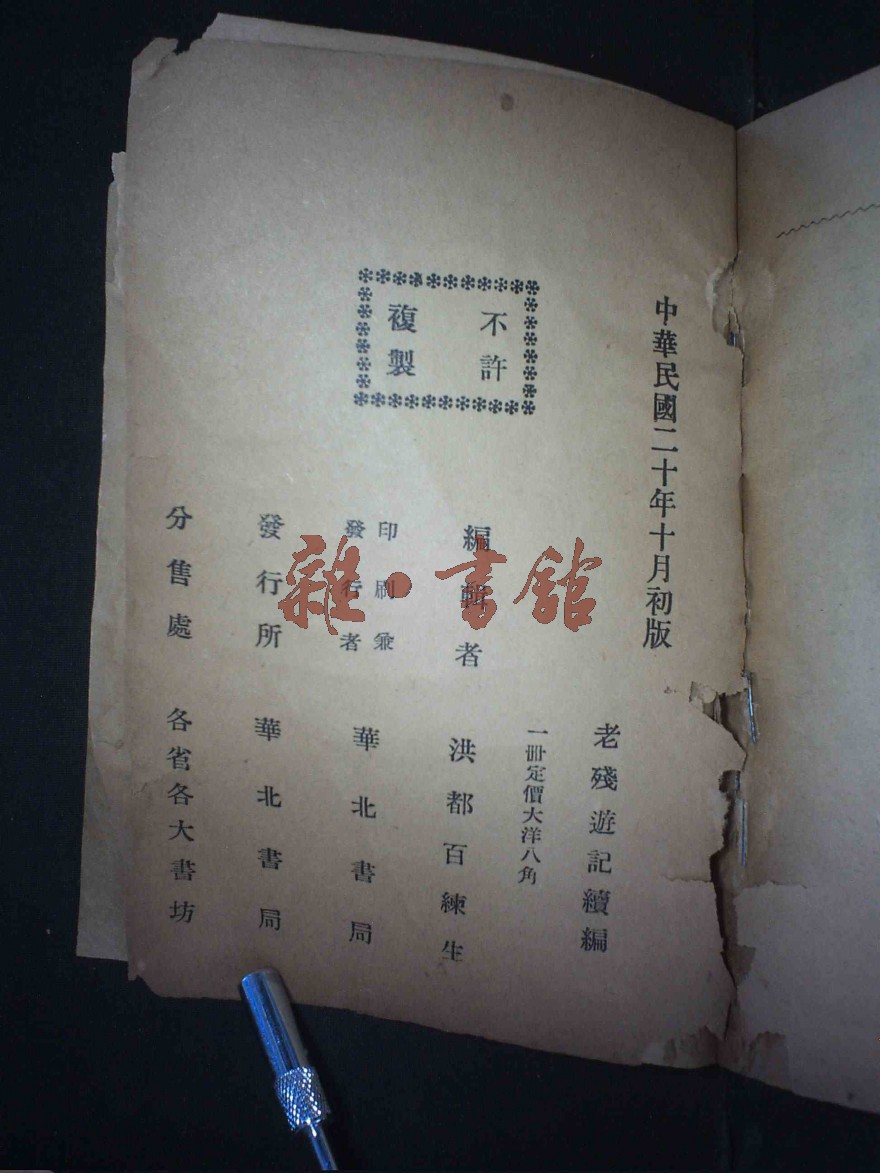 中華民國二十年十月初版
老殘遊記續編
一冊定價大洋八角
不許
複製
編輯者 洪都百練生
印刷兼
發行者 華北書局
發行所 華北書局
分售處 各省各大書坊
雜·書館